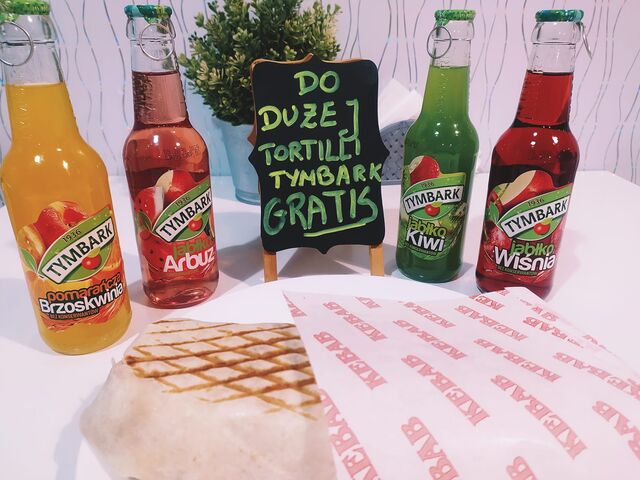 DO
DUŻEJ
TORTILLI
TYMBARK
GRATIS
1936
TYMBARK
pomarańcza
Brzoskwinia
BEZ KONSERWANTÓW
1936
TYMBARK
jabłko
Arbuz
1936
TYMBARK
jabłko
Kiwi
1936
TYMBARK
jabłko
Wiśnia
BEZ KONSERWANTÓW
KEBAB
KEBAB
KEBAB
KEBAB
KEBAB
KEBAB
KEBAB
KEBAB
KEBAB
KEBAB
KEBAB
KEBAB